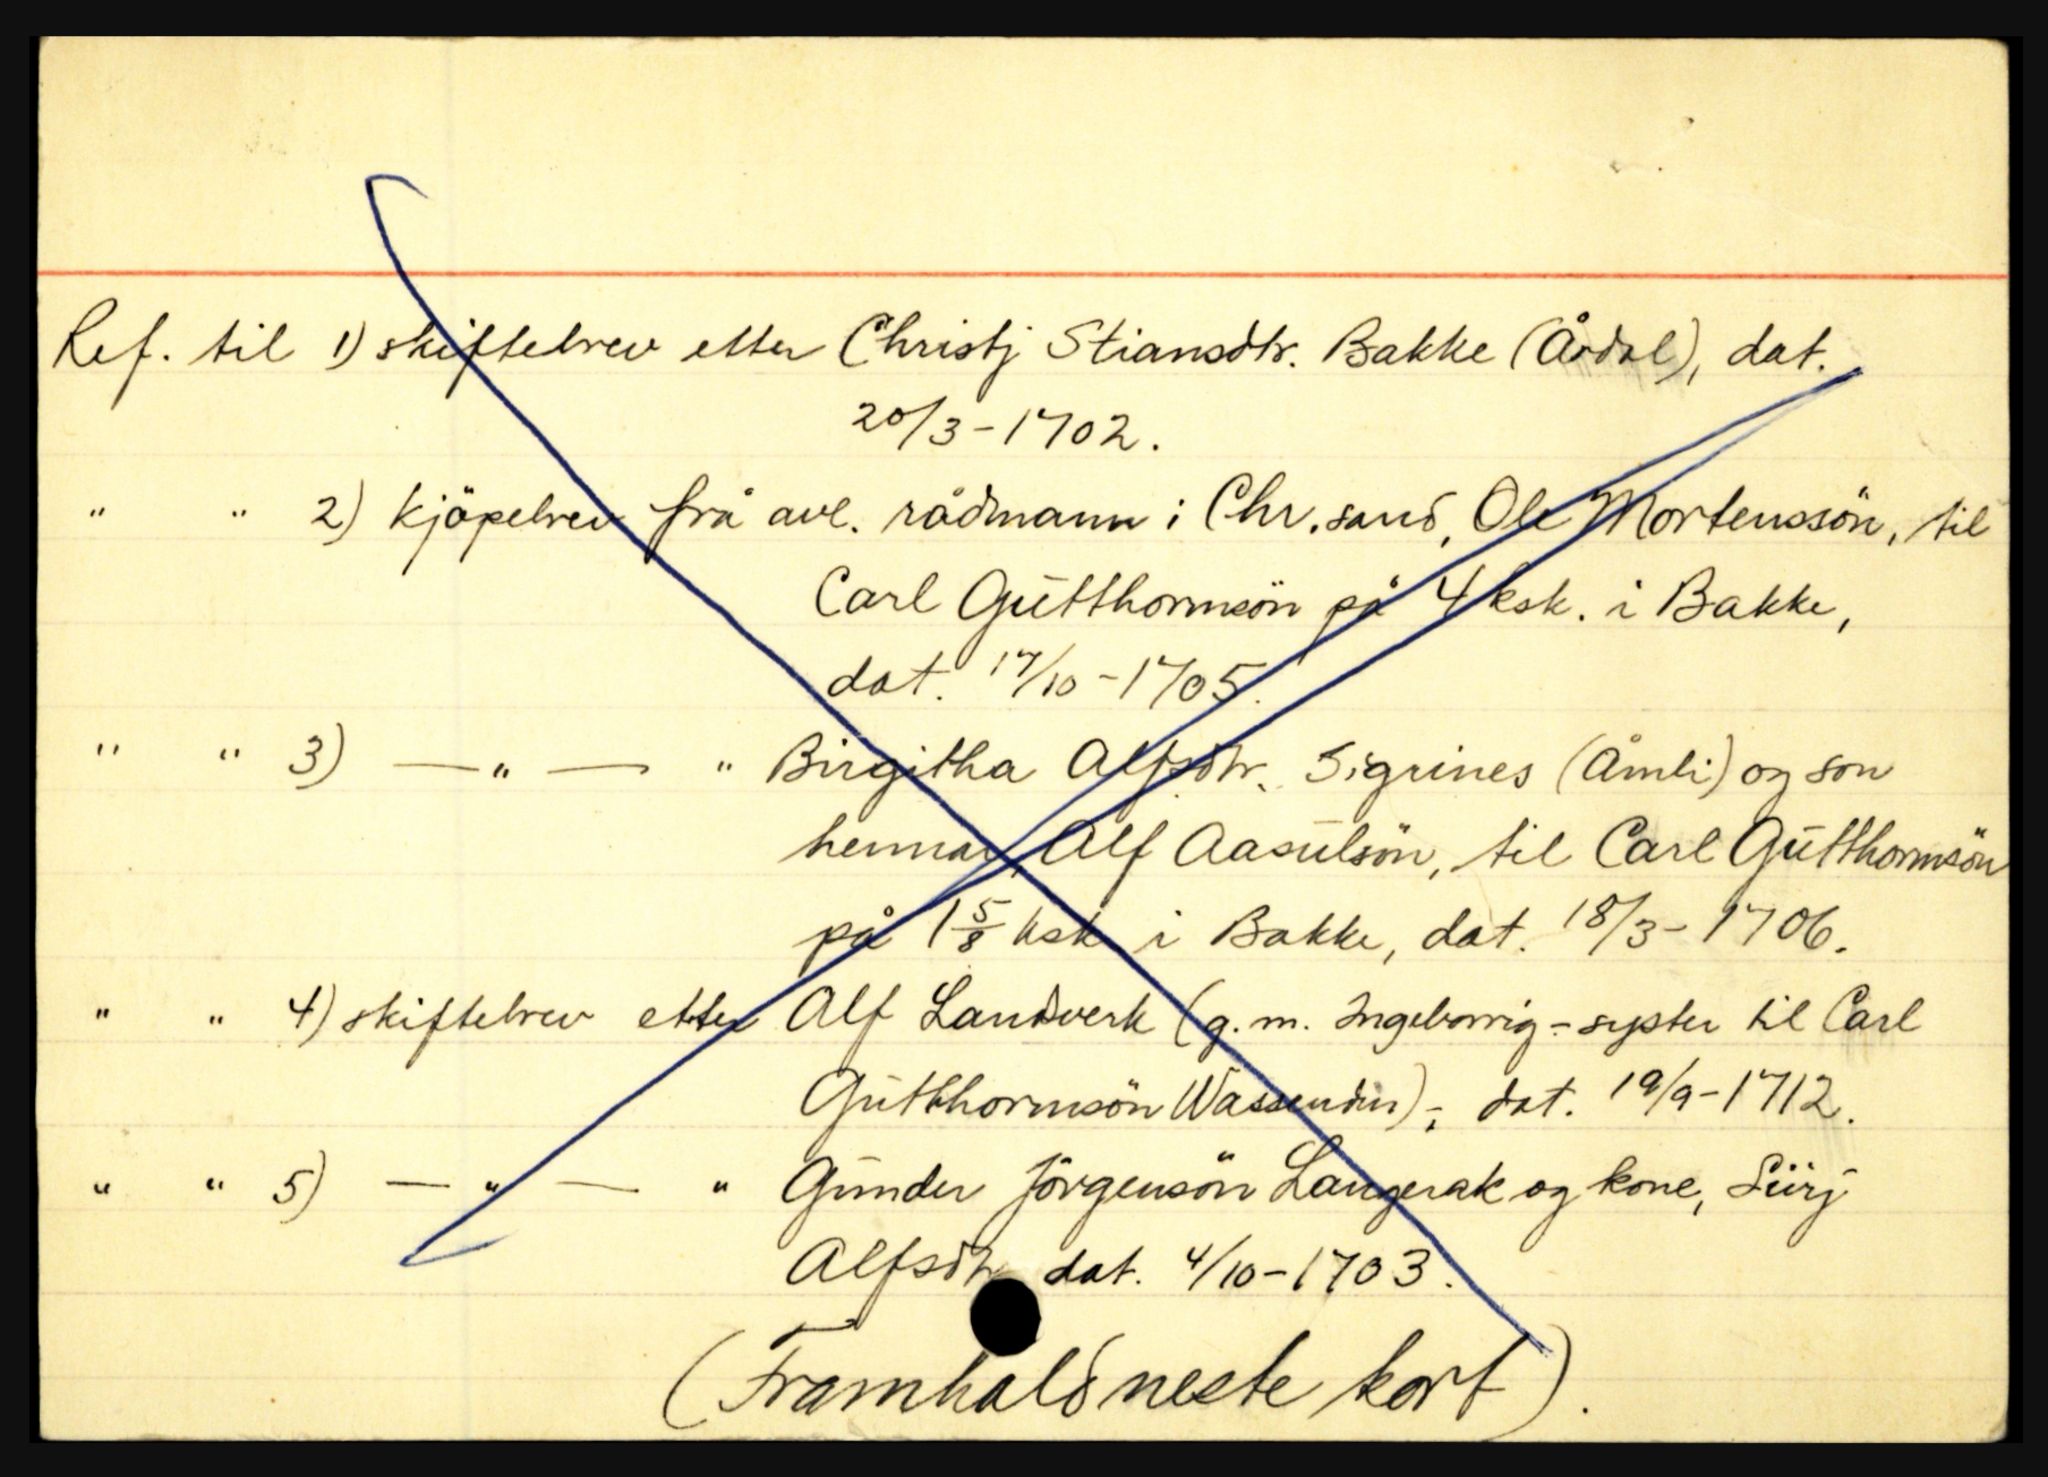 Ref. til 1) skiftebrev etter Christj Stiansdtr. Bakke (Årdal), dat.
20/3-1702.
" " 2) kjöpebrev frå avl. rådmann i Chr.sand, Ole Mortenssön, til
Carl Gutthormsön på 4 ksk. i Bakke,
dat. 17/10-1705.
" " 3) —"— " Birgitha Alfsdtr. Sigrines (Åmli) og son
hennar, Alf Aasulsön, til Carl Gutthormsön
på 1 5/8 ksk i Bakke, dat. 18/3-1706.
" " 4) skiftebrev etter Alf Landverk (g.m. Ingeborrig - syster til Carl
Gutthormsön Wassenden)-, dat. 19/9-1712.
" " 5) —"— " Gunder Jörgensön Langerak og kone, Siirj
Alfsdtr dat. 4/10-1703.
(Framhald neste kort).